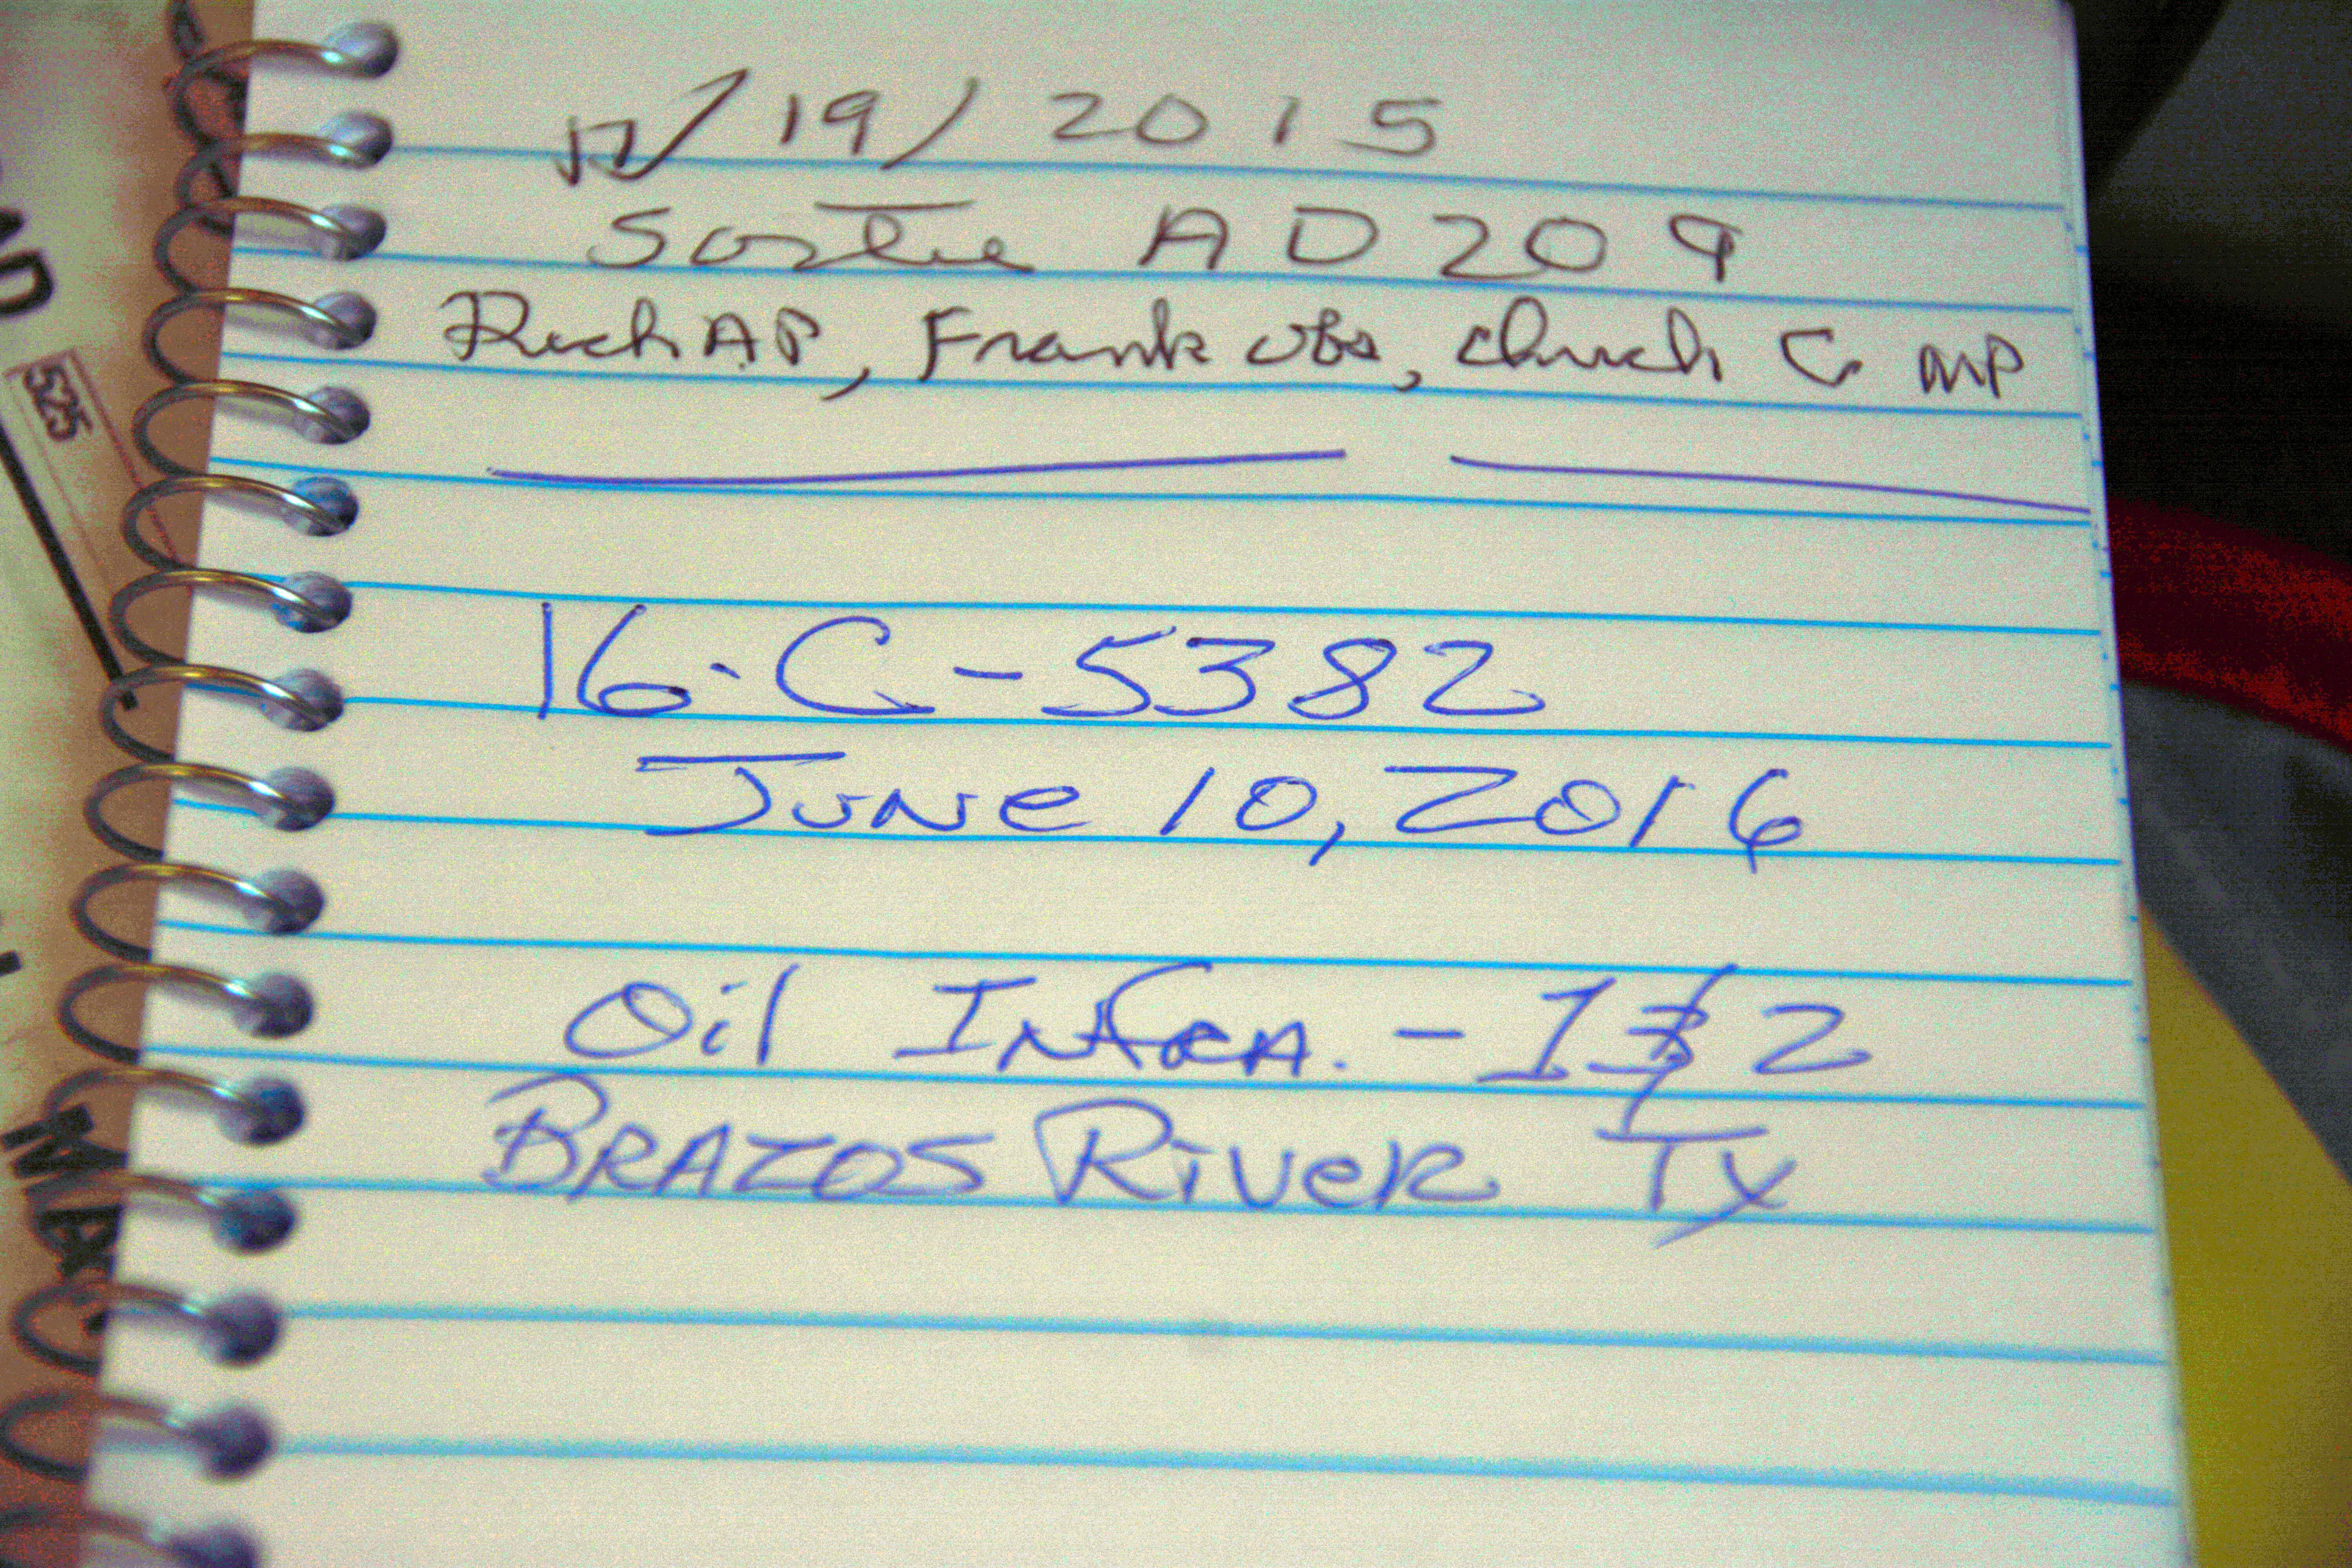 12/19/2015
Sortie AD209
Rich AP, Frank obs, Chuck C MP
16-C-5382
June 10, 2016
Oil Infra. - 1 & 2
Brazos River Tx
525